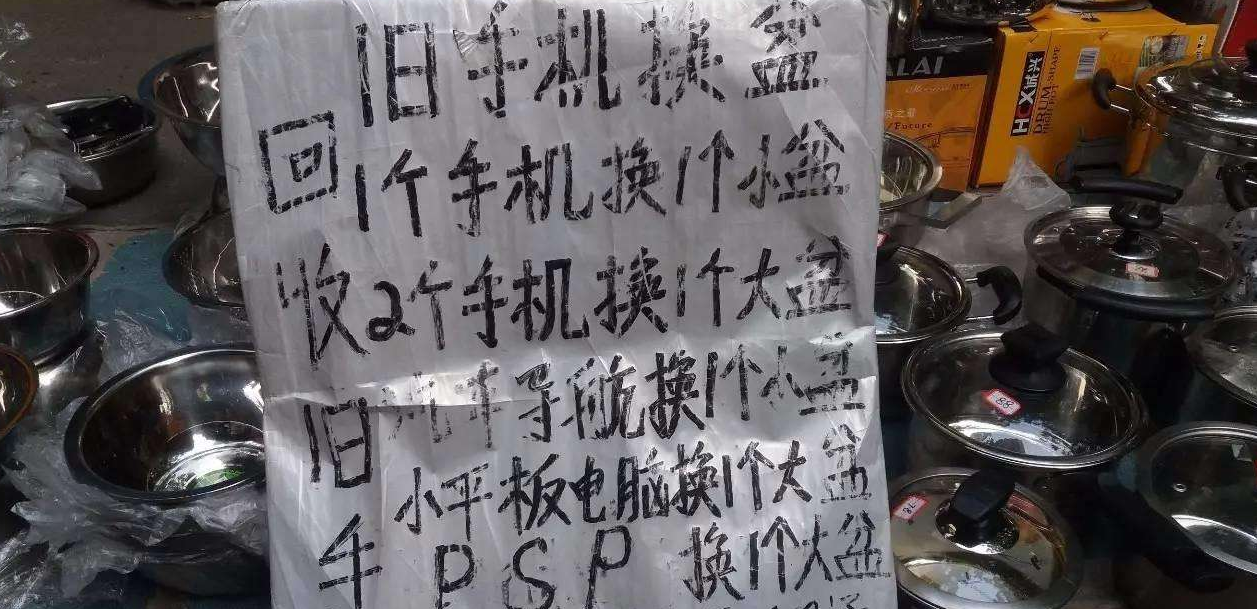 旧手机换盆
回
收
旧
手
1个手机换1个小盆
2个手机换1个大盆
汽车导航换1个小盆
小平板电脑换1个大盆
PSP 换1个大盆
ALAI
Future
HCX 诚兴
DRUM SHAPE
88